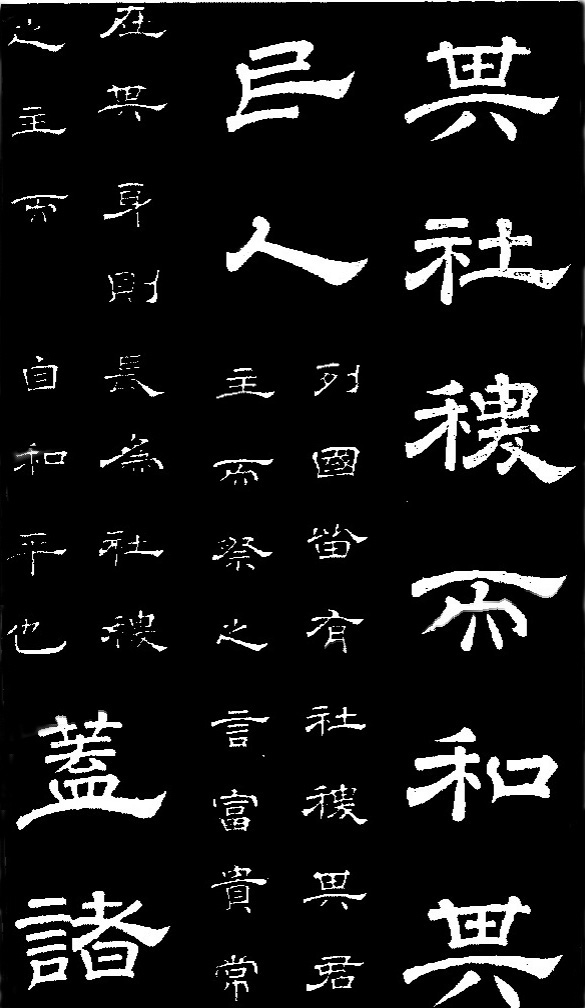 其社稷而和其
民人
列國皆有社稷其君
主而祭之言富貴常
在其身則長為社稷
之主而自和平也
蓋諸